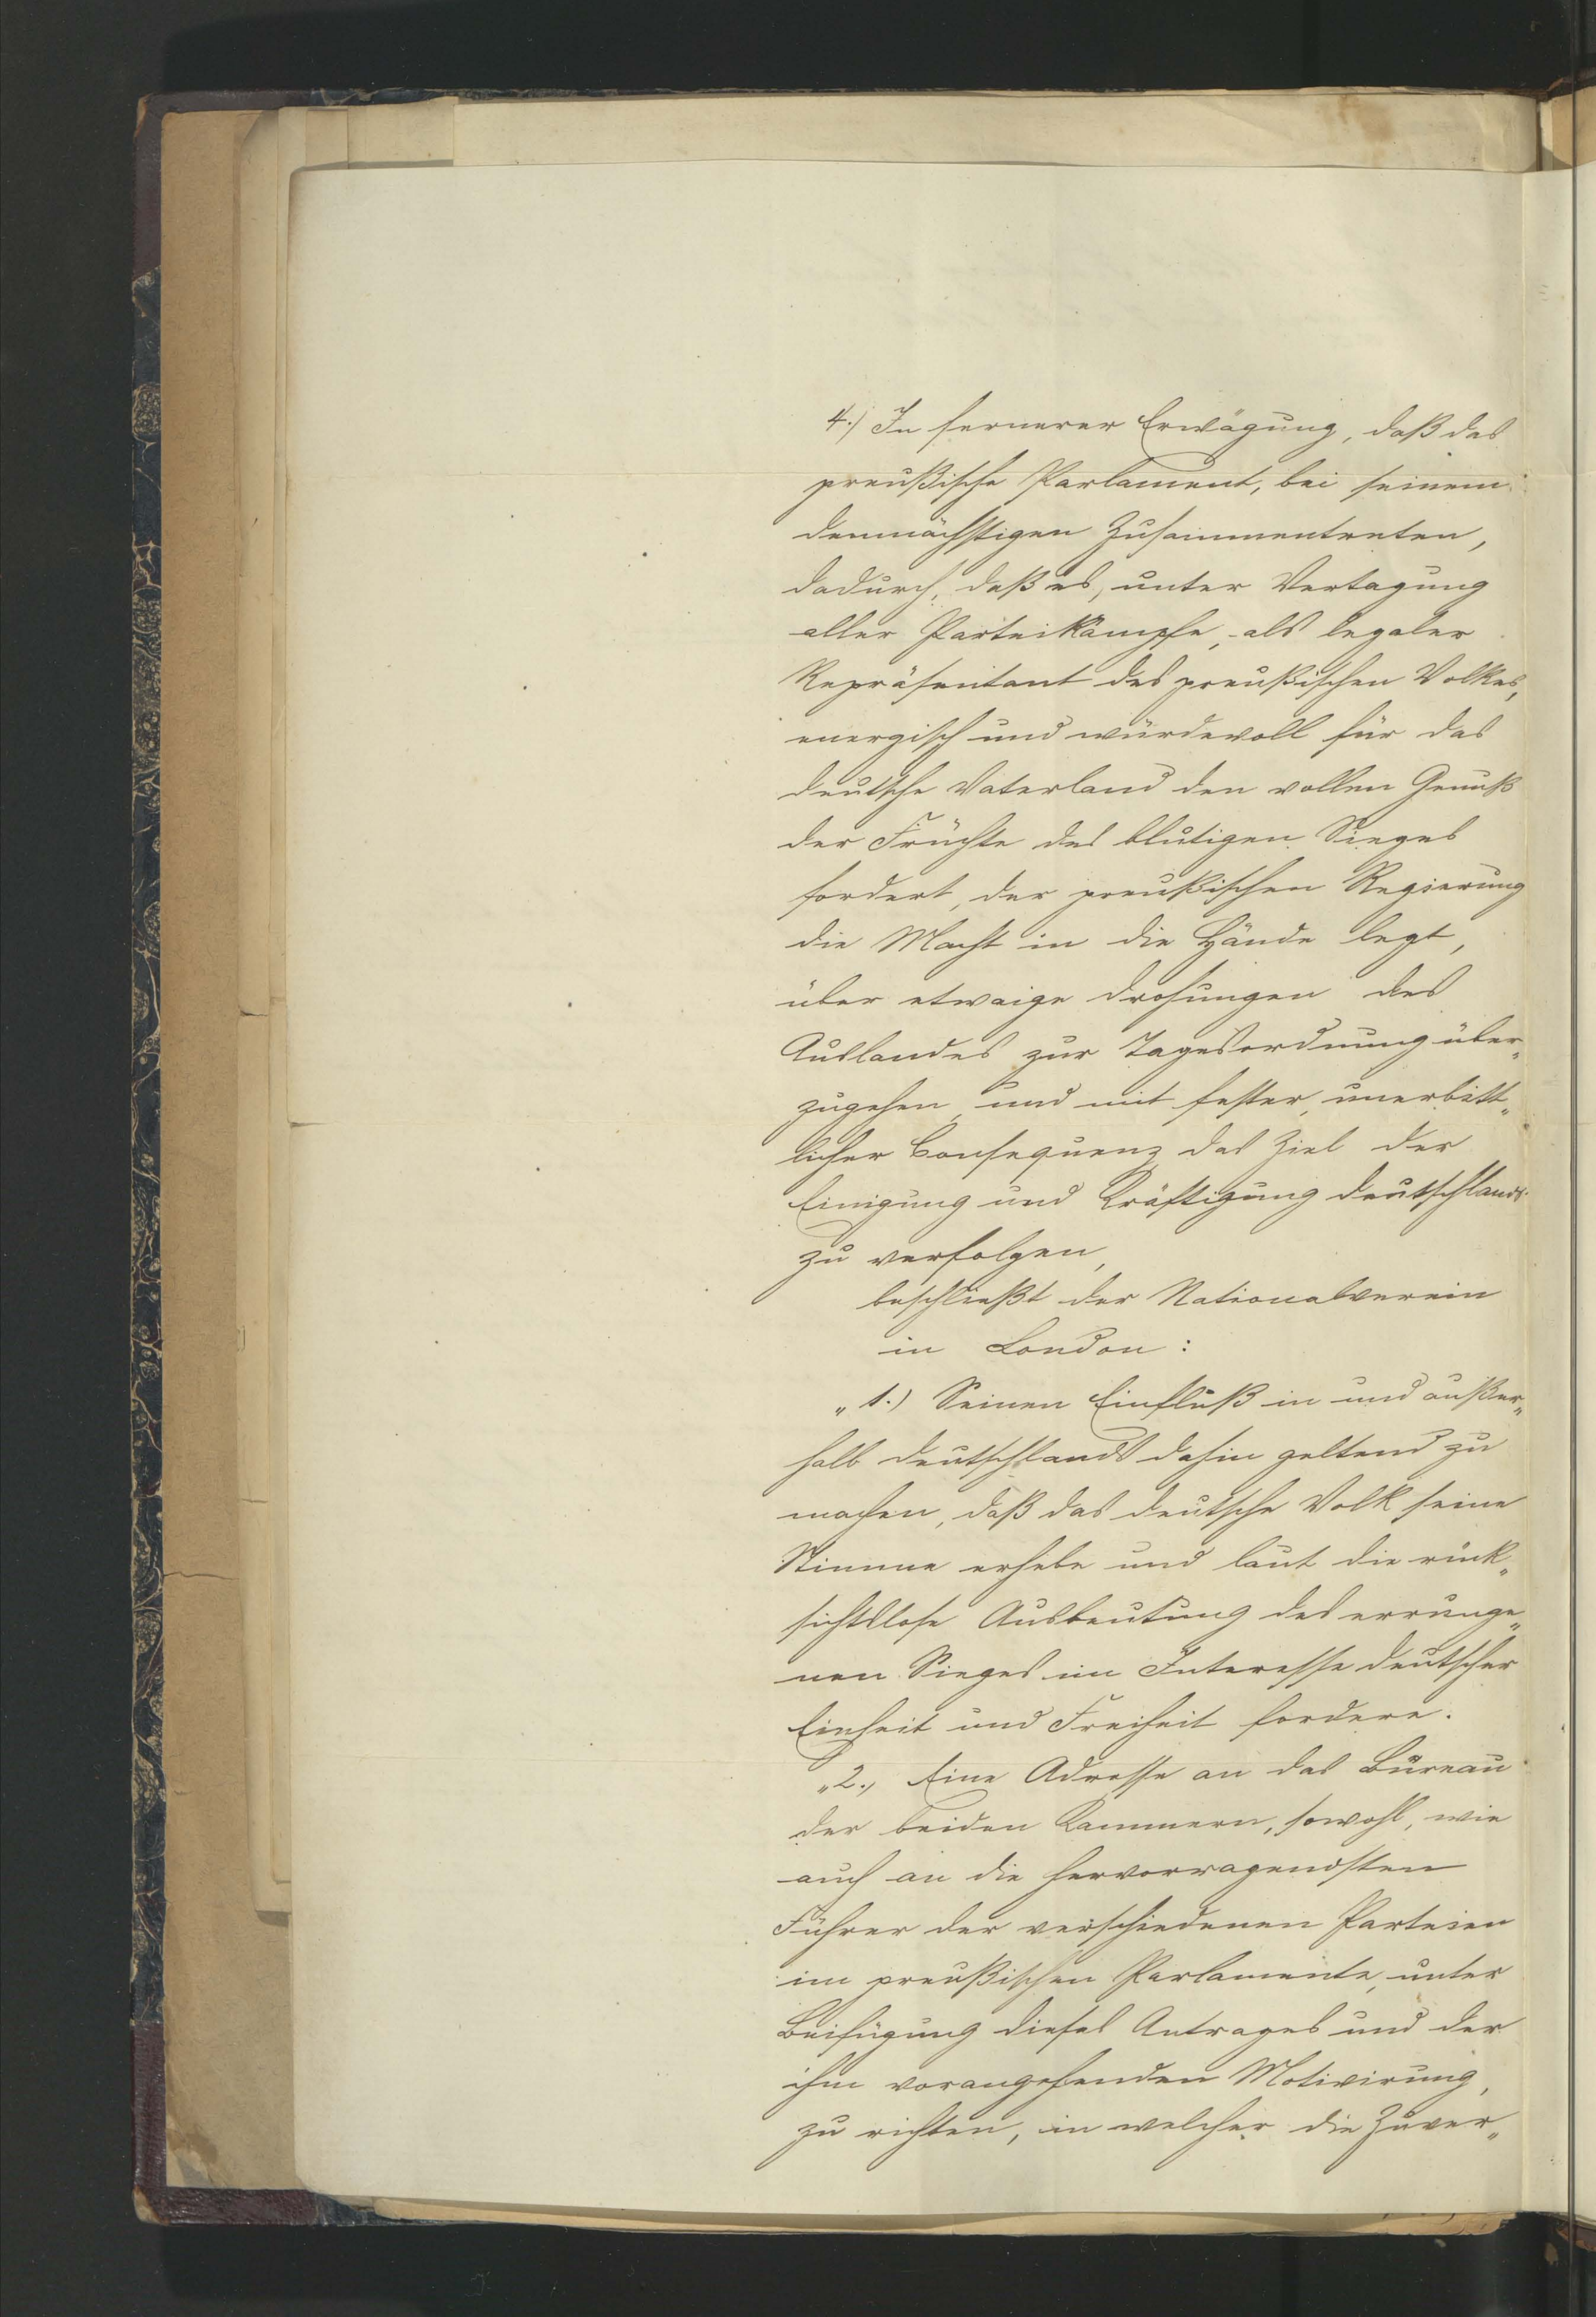 4.) In fernerer Erwägung, daß das
preußische Parlament, bei seinem
demnächstigen Zusammentreten,
dadurch, daß es, unter Vertagung
aller Parteikämpfe, als legaler
Repräsentant des preußischen Volkes,
energisch und würdevoll für das
deutsche Vaterland den vollen Genuß
der Früchte des blutigen Sieges
fordert, der preußischen Regierung
die Macht in die Hände legt,
über etwaige Drohungen des
Auslandes zur Tagesordnung über„
zugehen, und mit fester, unerbitt„
licher Consequenz das Ziel der
Einigung und Kräftigung Deutschlands
zu verfolgen,
beschließt der Nationalverein
in London:
„1.) Seinen Einfluß in und außer„
halb Deutschlands dahin geltend zu
machen, daß das deutsche Volk seine
Stimme erhebe und laut die rück„
sichtslose Ausbeutung des errunge„
nen Sieges im Interesse deutscher
Einheit und Freiheit fordere.
„2., Eine Adresse an das Büreau
der beiden Kammern, sowohl, wie
auch an die hervorragendsten
Führer der verschiedenen Parteien
im preußischen Parlamente, unter
Beifügung dieses Antrages und der
ihm vorangehenden Motivirung,
zu richten, in welcher die Zuver„